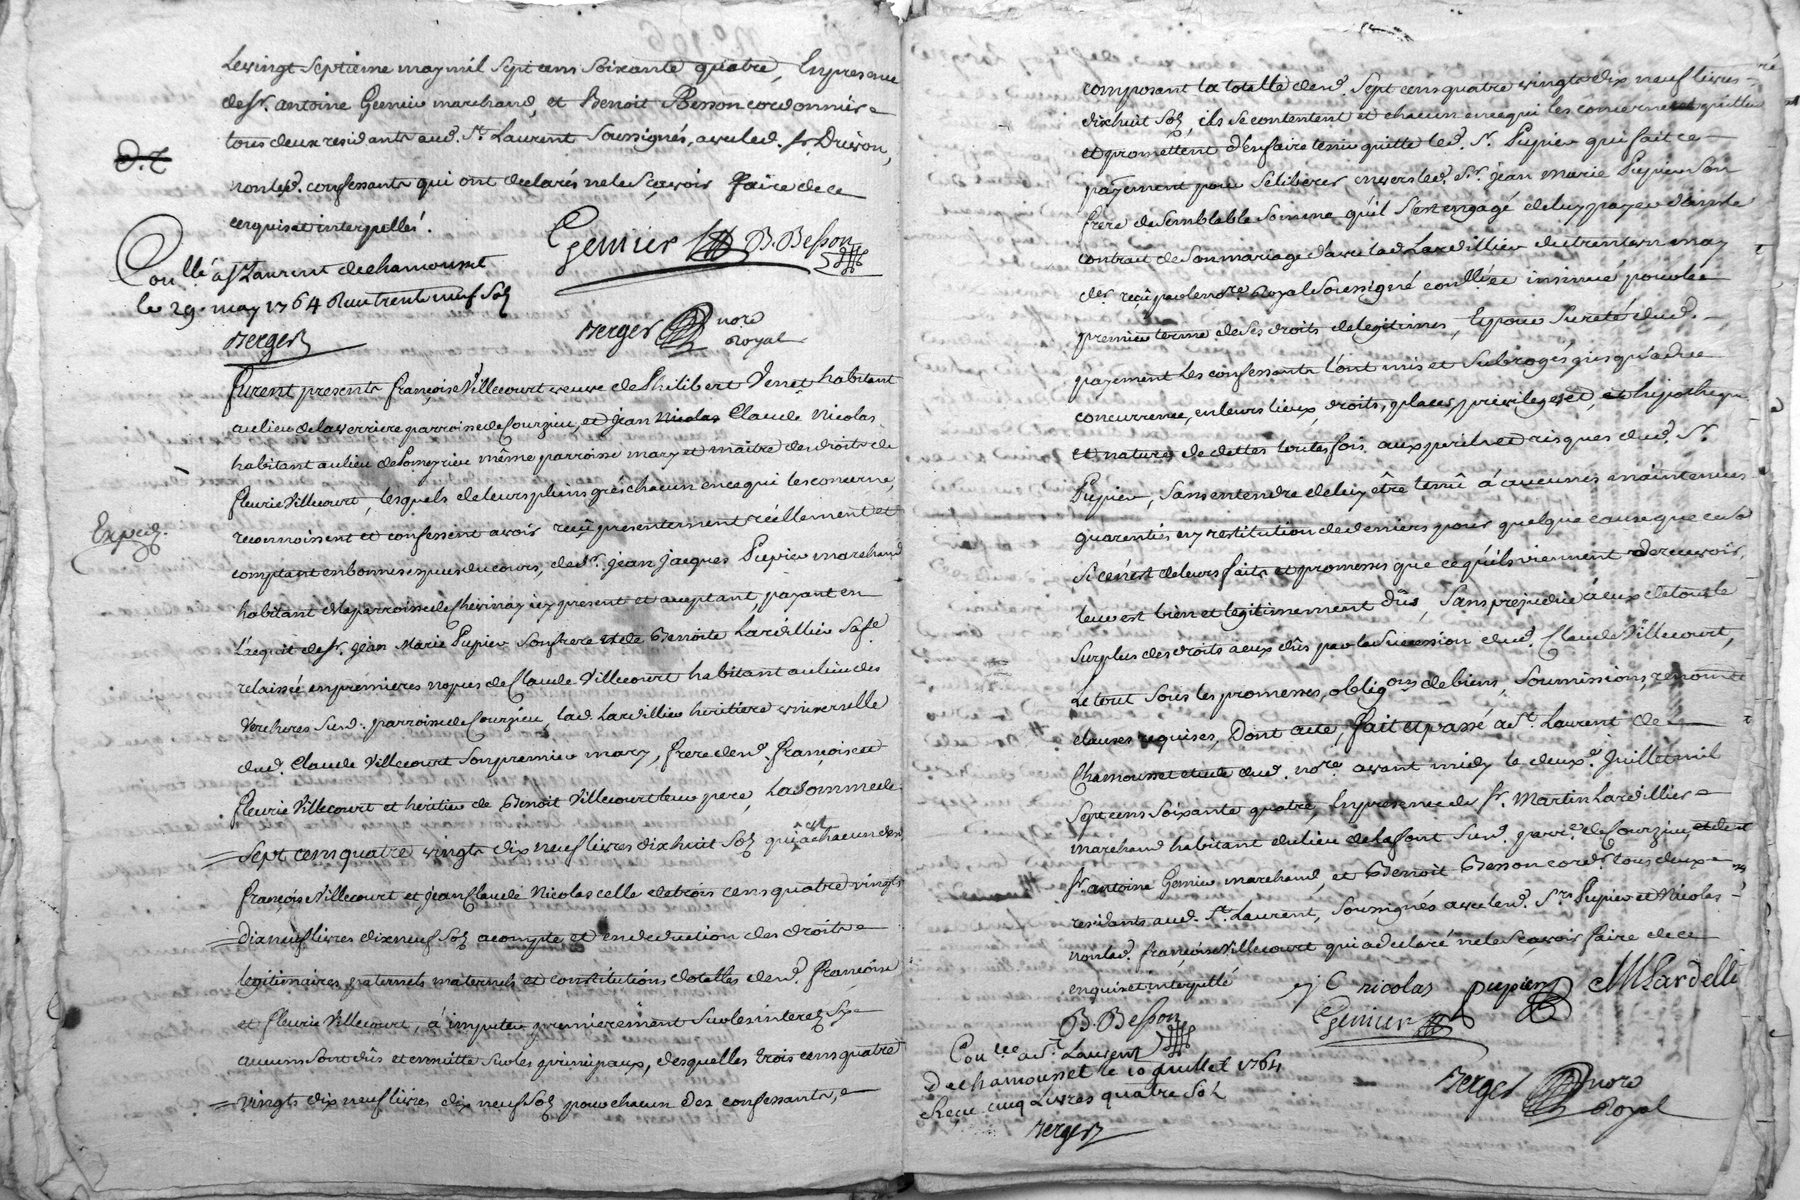 Le vingt septieme may mil sept cens soixante quatre, En presence
de sr. antoine Gemier marchand, et Benoit Besson cordonnier
tous deux residants aud. St. Laurent soussignés, avec led. sr. Druvon,
non lesd. confessants qui ont declarés ne le sçavoir faire de ce
enquis et interpellés.
d. t
Gemier B. Besson
Conllé a St Laurent de chamousset
le 29. may 1764 Reçu trente neuf sols
Berger
Berger nore
Royal
furent presents françoise Villecourt veuve de Philibert Venet habitant
au lieu de laverriere parroisse de Courzieu, et Jean Nicolas Claude Nicolas
habitant au lieu de Pomeyrieu même parroisse mary et maitre des droits de
fleurie Villecourt, lesquels de leurs pleins grés chacun en ce qui les concerne,
Exped.
reconnoissent et confessent avoir reçû presentement réellement et
comptant en bonnes especes du cours, de sr. jean jacques Pupier marchand
habitant de la parroisse de Chevinay icy present et acceptant, payant en
l'acquit de sr. jean Marie Pupier son frere et de Benoite Lardillier sa fe
relaissée en premieres nopces de Claude Villecourt habitant au lieu des
Verchères susd. parroisse de Courzieu, lad. Lardillier heritiere universelle
dud. Claude Villecourt son premier mary, frere desd. françoise et
fleurie Villecourt et heritier de Benoit Villecourt leur pere, La somme de
sept cens quatre vingts dix neuf livres dix huit sols qui est a chacun desd
françoise Villecourt et jean Claude Nicolas celle de trois cens quatre vingts
dix neuf livres dix neuf sols acompte et en deduction des droits
legitimaires paternels maternels et constitutions dotalles desd. françoise
et fleurie Villecourt, à imputer premierement sur les interets sy
aucuns sont dûs et ensuitte sur les principaux, desquelles trois cens quatre
vingts dix neuf livres dix neuf sols pour chacun des confessants,
composant la totalle desd. sept cens quatre vingts dix neuf livres
dixhuit sols, ils se contentent et chacun en ce qui les concerne et quittent
et promettent d'en faire tenir quitte led. sr. Pupier qui fait ce
payement pour se liberer envers led. sr. jean Marie Pupier son
frere de semblable somme qu'il s'est engagé de luy payer dans le
contrat de son mariage avec lad. Lardillier du trente un may
der. reçû par le nore Royal soussigné conllé et insinué pour le
premier terme de ses droits de legitimes, Et pour sureté dud.
payement les confessants l'ont mis et subrogés jusqu'a due
concurrence, en leurs lieux, droits, places, privileges et hipotheque
et nature de dettes toutes fois aux perils et risques dud. sr.
Pupier, sans entendre de luy être tenû à aucunes maintenues
guarenties ny restitution de deniers pour quelque cause que ce so
si ce n'est de leurs faits et promesses que ce qu'ils viennent de recevoir
leur est bien et legitimement dûs, sans prejudice à eux de tout le
surplus des droits a eux dûs par la succession dud. Claude Villecourt,
Le tout sous les promesses, obligons de biens, soumissions, renoncn
clauses requises, Dont acte, fait et passé a St. Laurent de
Chamousset etude dud. nore. avant midy le deuxe. juillet mil
sept cens soixante quatre, En presence de sr. Martin Lardillier
marchand habitant du lieu de Lafont susd. parre. de Courzieu, et de st
sr. antoine Gemier marchand, et Benoit Besson cordr tous deux
residants aud. St. Laurent, soussignés avec lesd. srs Pupier et Nicolas
non lad. françoise Villecourt qui a declaré ne le sçavoir faire de ce
enquis et interpellé
j C nicolas pupier M Lardelli
B. Besson Gemier
Conllé a St. Laurent
De chamousset le 10 juillet 1764
Reçu cinq Livres quatre sols
Berger
Berger nore
Royal